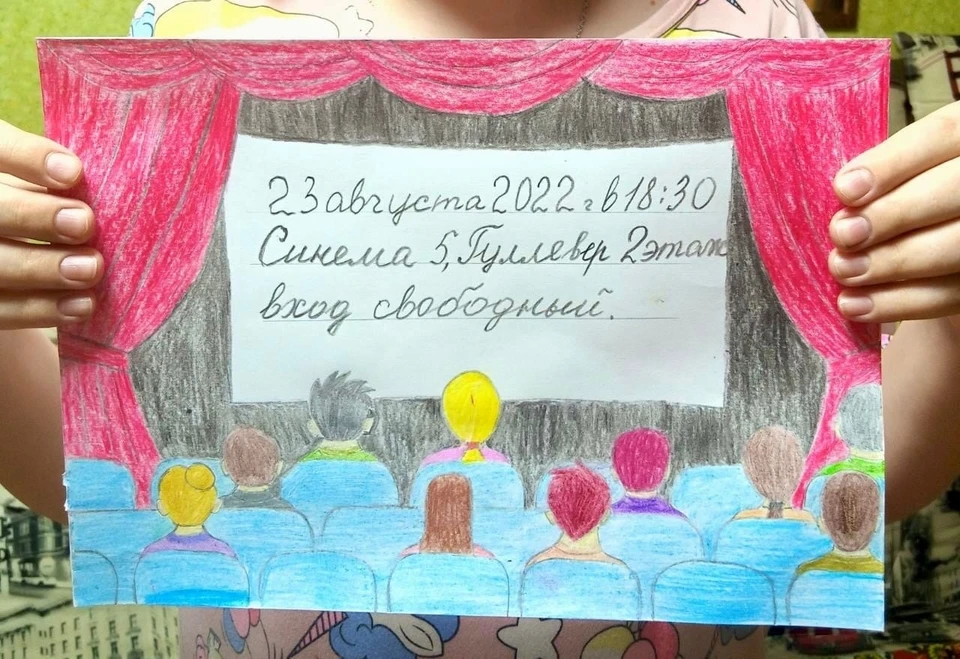 23 августа 2022 г в 18:30
Синема 5, Гуллевер 2 этаж
вход свободный.